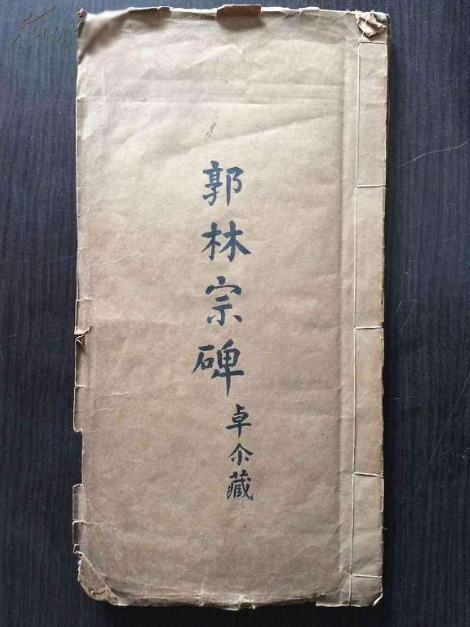 郭林宗碑
卓尒藏